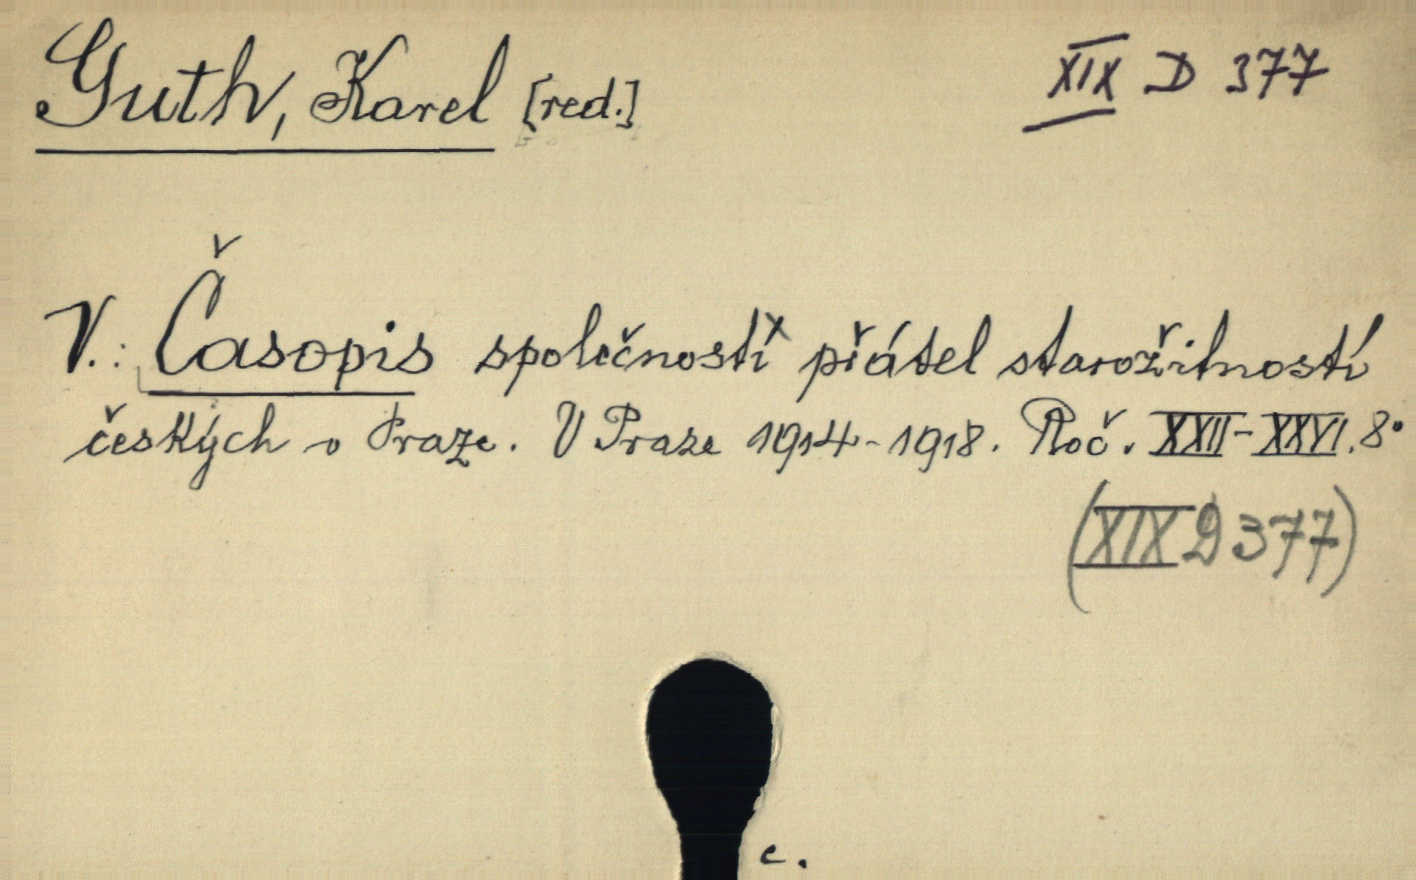 Guth, Karel [red.] XIX D 377
V.: Časopis společnosti přátel starožitností
českých v Praze. V Praze 1914-1918. Roč. XXII-XXVI. 8°
(XIX D 377)
c.